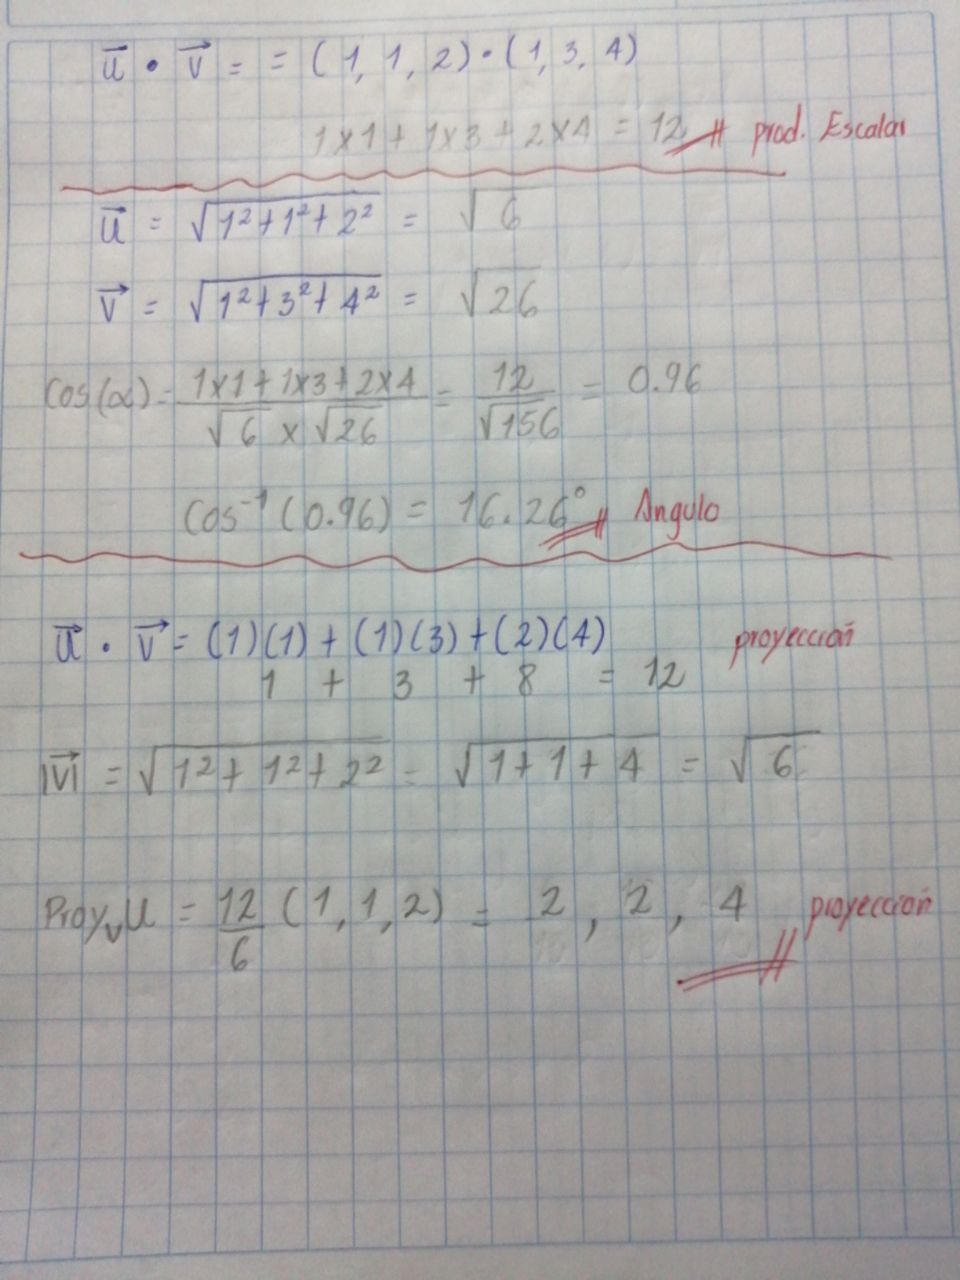 u⃗ • v⃗ = = (1, 1, 2) • (1, 3, 4)
1x1 + 1x3 + 2x4 = 12 prod. Escalar
u⃗ = √1²+1²+2² = √6
v⃗ = √1²+3²+4² = √26
Cos(α) = 1x1+1x3+2x4 / √6 x √26 = 12 / √156 = 0.96
Cos⁻¹(0.96) = 16.26° Angulo
u⃗ • v⃗ = (1)(1) + (1)(3) + (2)(4) proyección
1 + 3 + 8 = 12
|v⃗| = √1²+1²+2² = √1+1+4 = √6
Proyᵥu = 12/6 (1, 1, 2) = 2, 2, 4 proyección